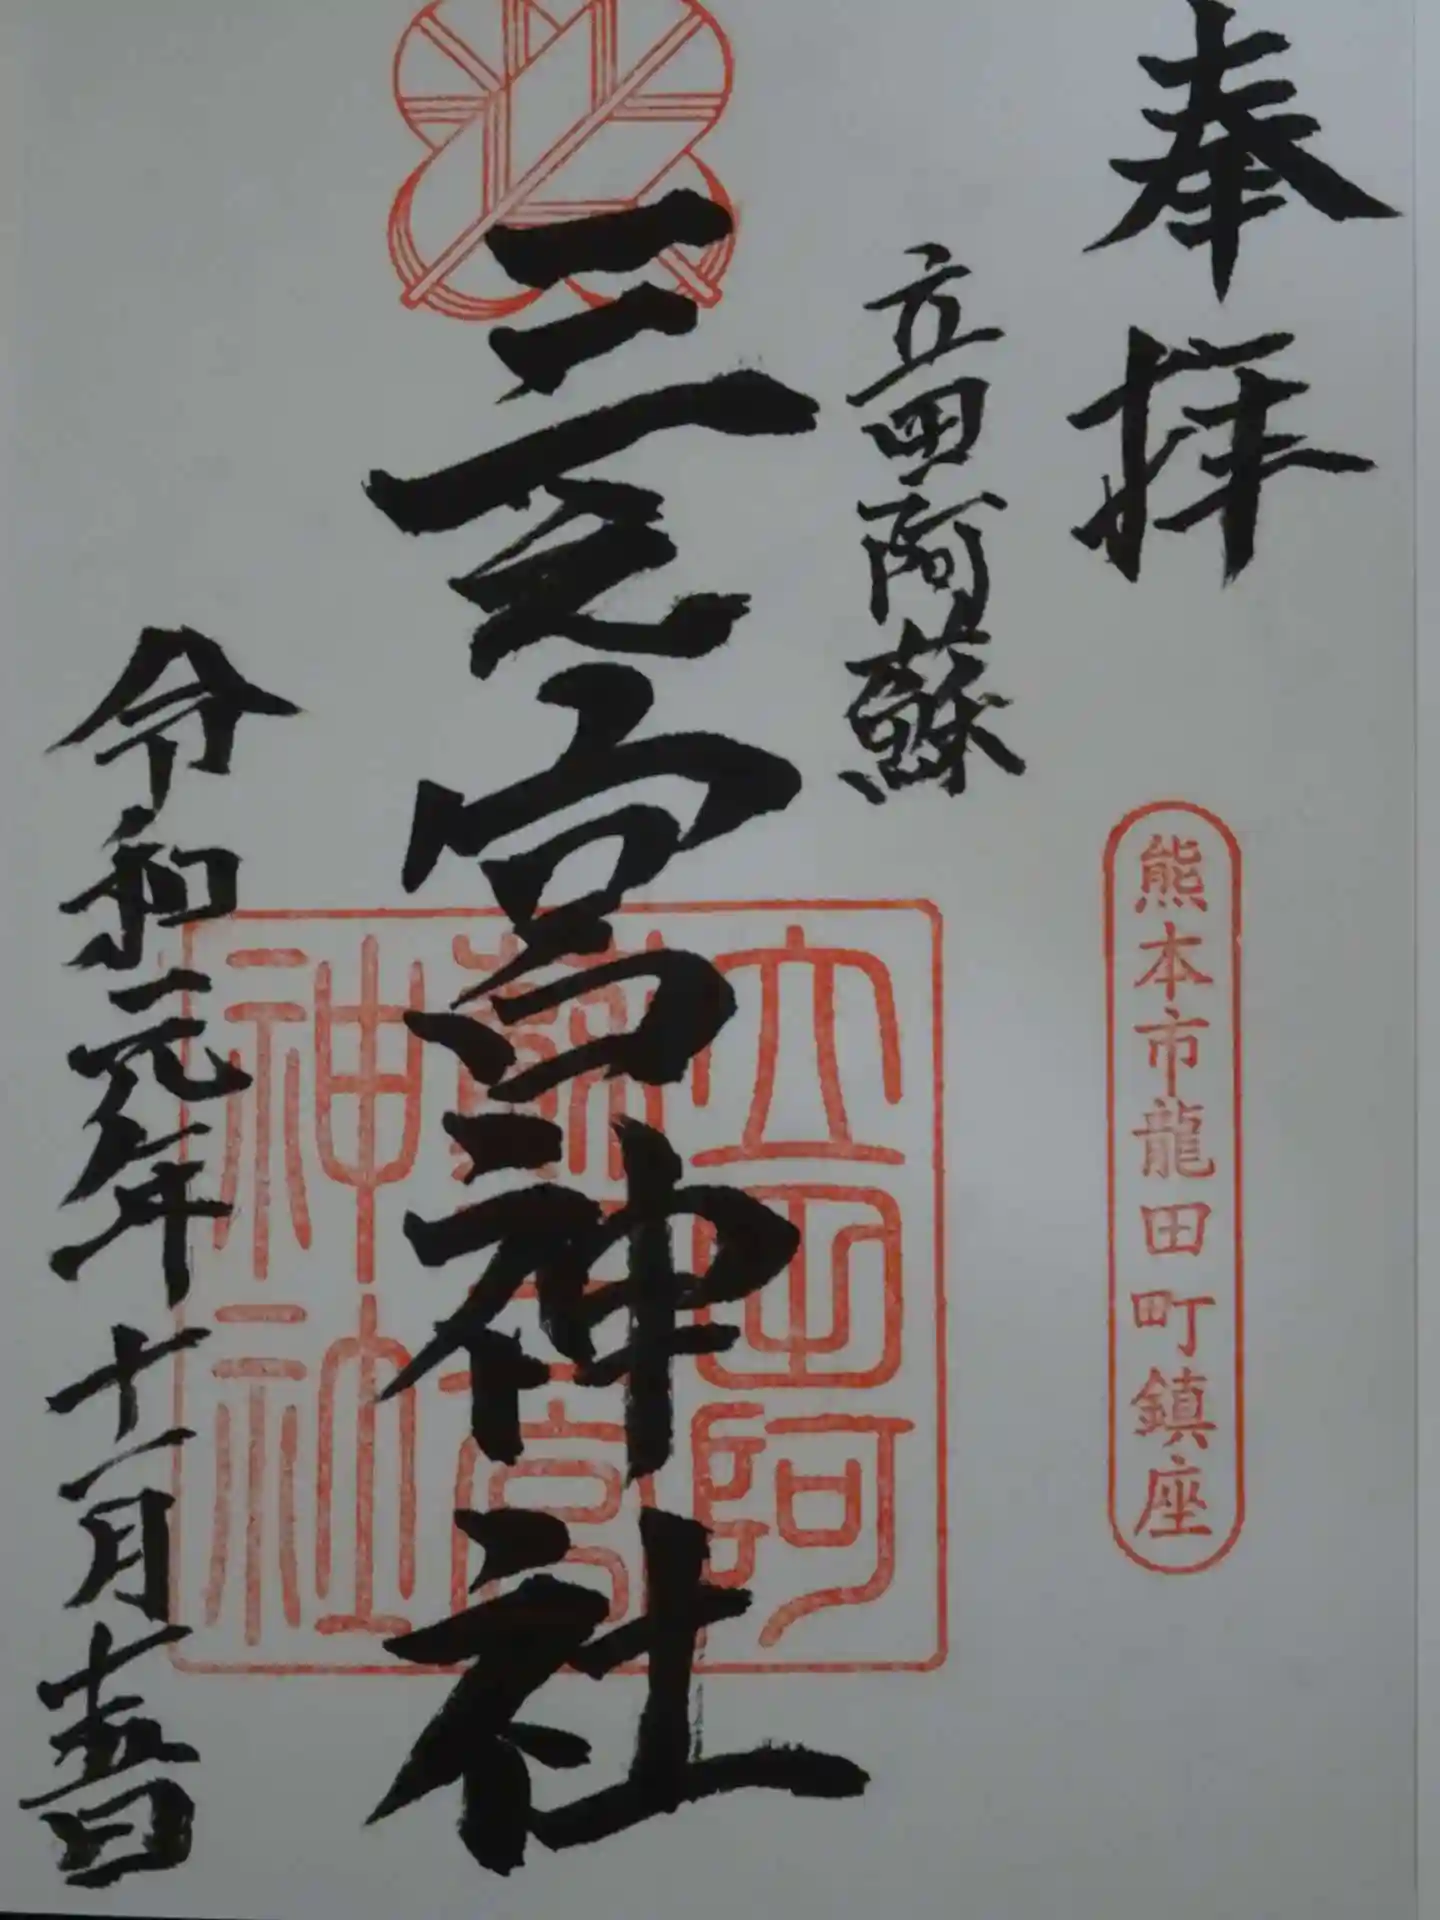 奉拝
熊本市龍田町鎮座
立田阿蘇
三之宮神社
立田阿
蘇三宮
神社
令和元年十一月十五日